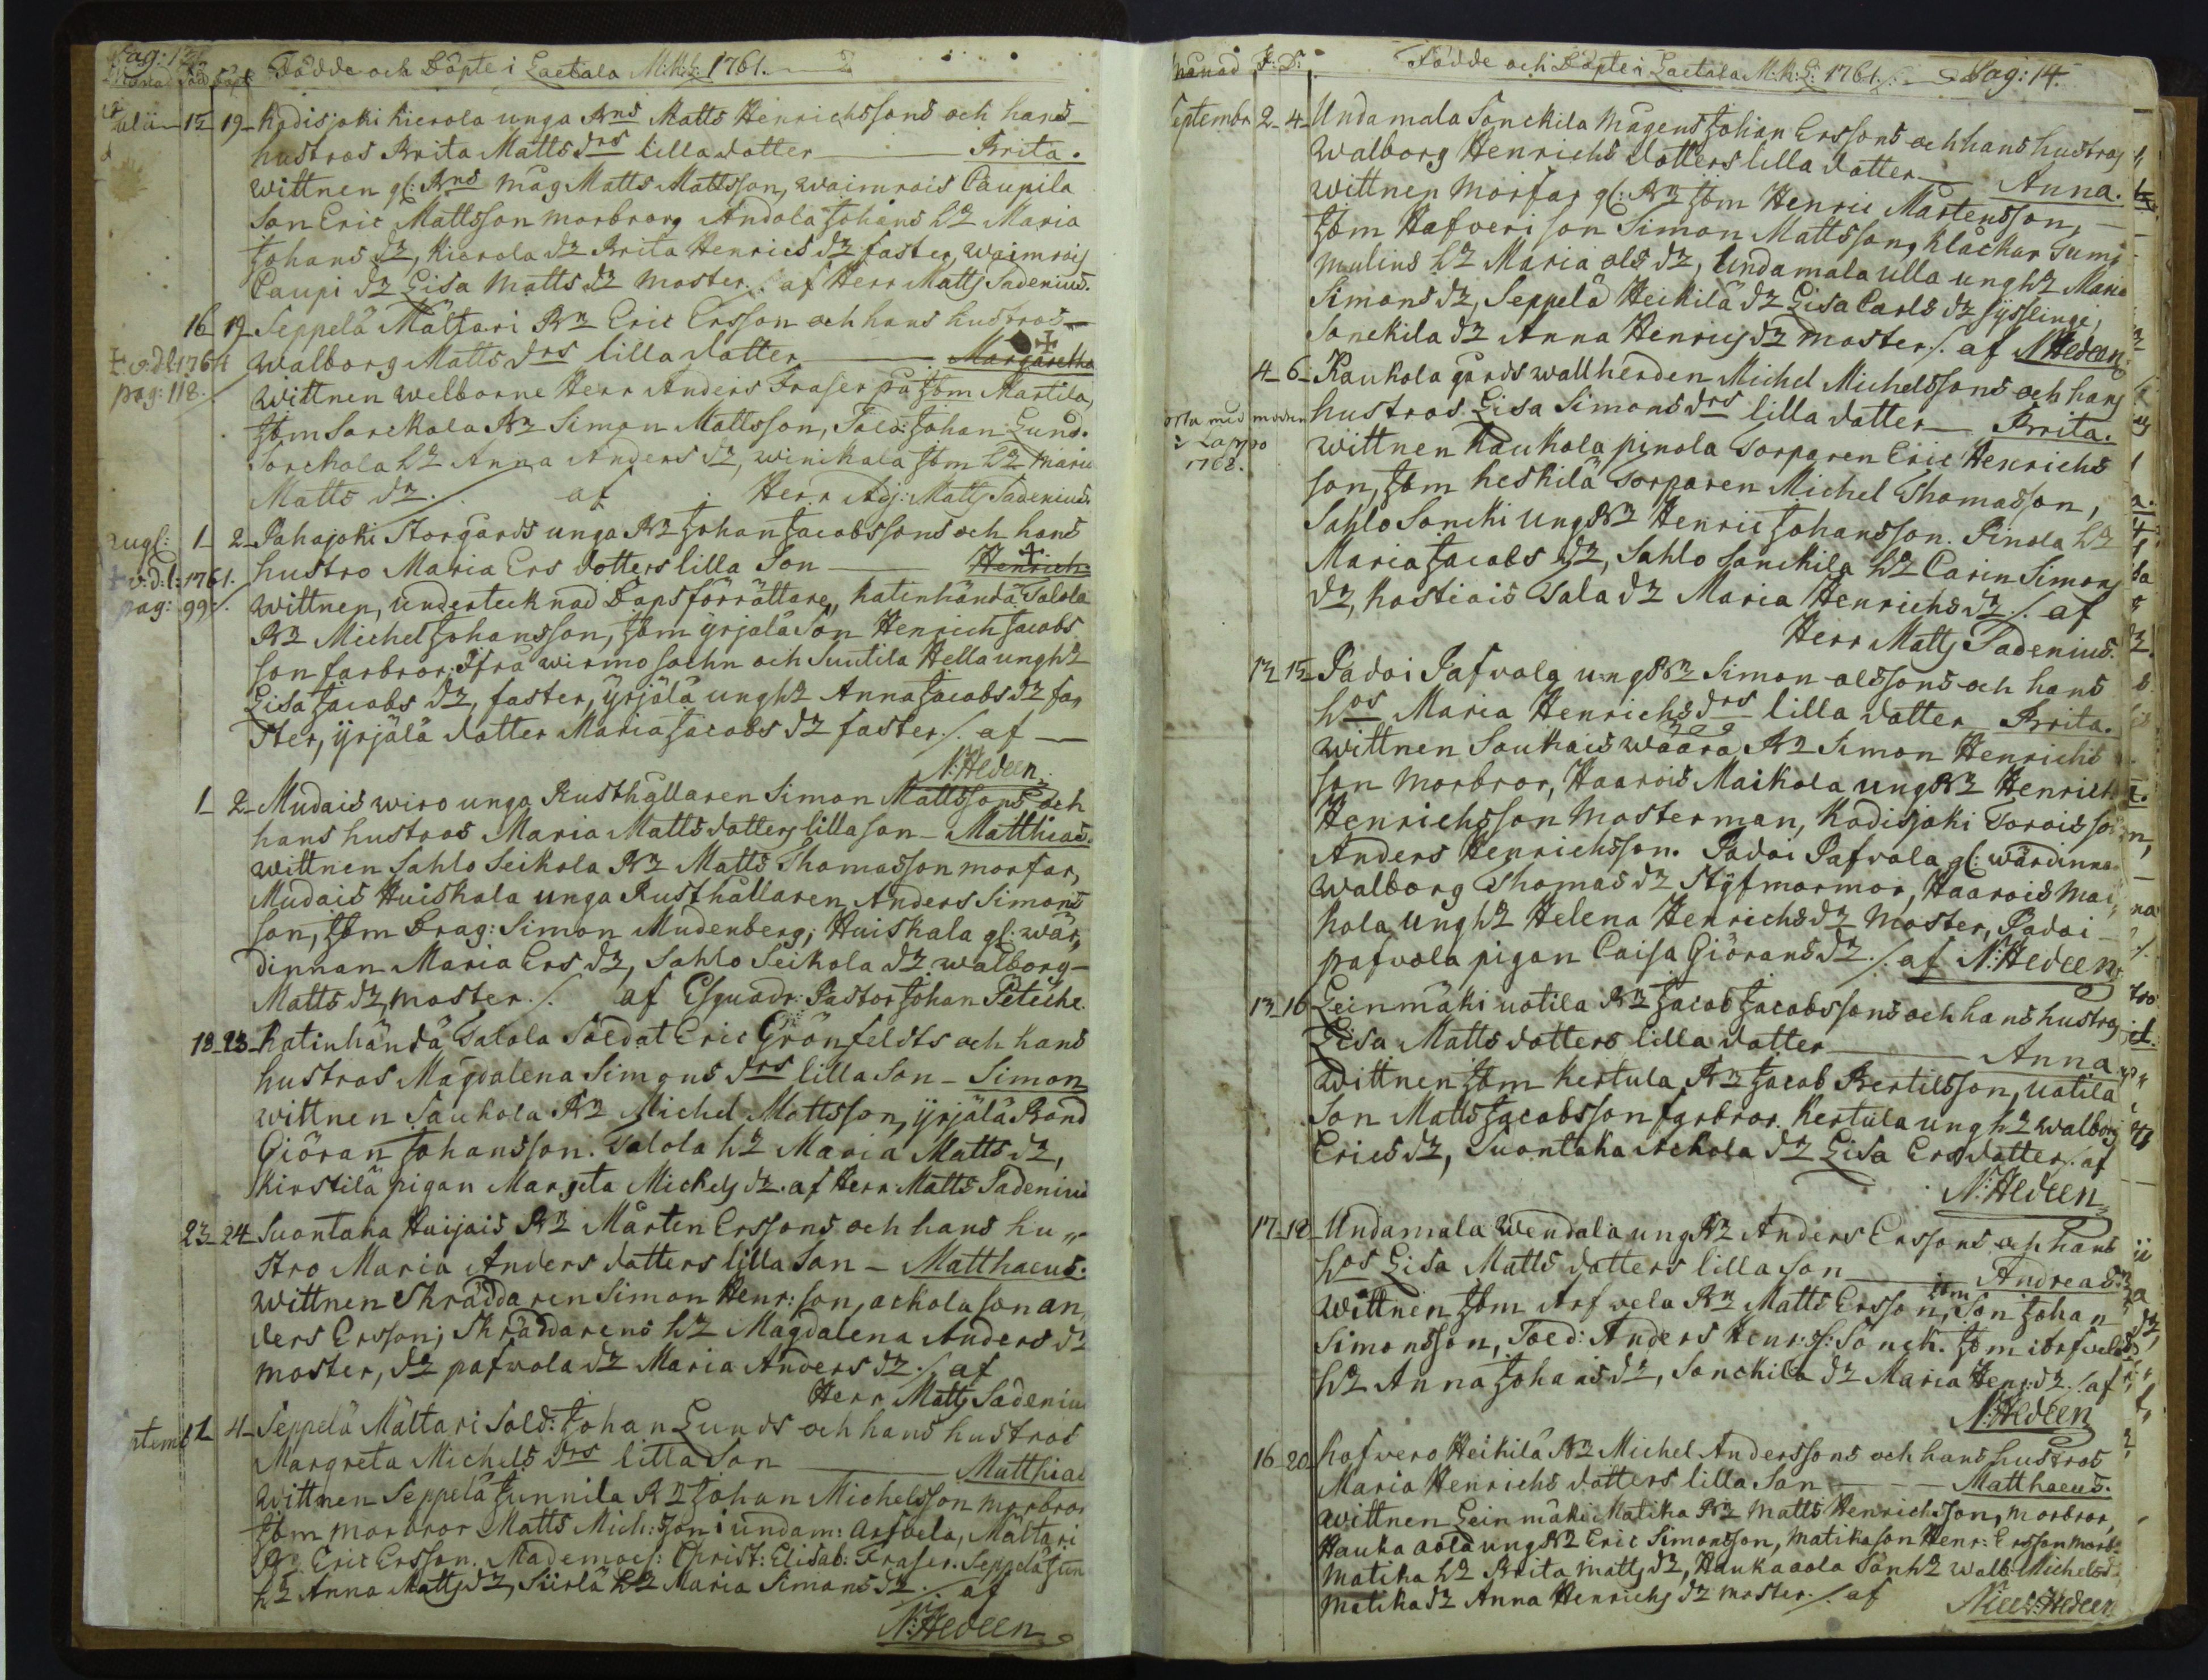 Pag: 13
Månad Föd Döpt Födde och Döpte i Laetala M:K:L: 1761.
Julii 15 19 Kodisjoki Kierola unga Bns Matts Henrichssons och hans
hustros Brita Matts drs lilla dotter Brita.
wittnen gl: Bns måg Matts Mattsson, waimrois Caupila
Son Eric Mattsson morbror, Andola Johans hz Maria
Johans dz, Kierola dz Brita Henrics dz faster, waimrois
Caupi dz Lisa Matts dz moster. af Herr Matts Sadenius.
16 19 Seppelä Mältari Bn Eric Ersson och hans hustros
+ v. d. l. 1764 walborg Matts drs lilla dotter Margaretha
pag: 118. wittnen welborne Herr Anders Fraser på Jbm Martila,
Jbm Sorckola Bz Simon Mattsson, Sold: Johan Lund.
Sorckola hz Anna Anders dz, winikala Jbm hz Maria
Matts dz. af Herr Adj: Matts Sadenius.
augs: 1 2 Pahajoki Storgårds unga Bz Johan Jacobssons och hans
+ v: d: l: 1761. hustro Maria Ers dotters lilla Son Henrich
pag: 99. wittnen, undertecknad Dopsförrättare, Katinhändä Talola
Bz Michel Johansson, Jbm yrjälä Son Henrich Jacobs
son farbror. Ifrå wirmo sochn och Suutila Hella ung hz
Lisa Jacobs dz, faster, yrjälä ung hz Anna Jacobs dz fa,
ster, yrjälä dotter Maria Jacobs dz faster. af
N: Hedeen
1 2 Mudais wiro unga Rusthållaren Simon Mattssons och
hans hustros Maria Matts dotters lilla son Matthias.
wittnen Sahlo Seikola Bz Matts Thomasson morfar,
Mudais Huiskala unga Rusthållaren Anders Simons
son, Jbm Drag: Simon Mudenberg, Huiskala gl: wär,
dinnan Maria Ers dz, Sahlo Seikola dz walborg
Matts dz, moster. af Esquadr: Pastor Johan Peteche.
18 23 Katinhändä Talola Soldat Eric Grönfeldts och hans
hustros Magdalena Simons drs lilla Son Simon
wittnen Saukola Bz Michel Mattsson, yrjälä Bond
Giöran Johansson. Talola hz Maria Matts dz,
Kirstilä pigan Margeta Michels dz. af Herr Matts Sadenius
23 24 Suontaka Huijais Bz Mårten Erssons och hans hu,,
stro Maria Anders dotters lilla Son Matthaeus.
wittnen Skräddaren Simon Henr: son, ackola son An
ders Ersson; Skräddarens hz Magdalena Anders dz
moster, dz pafwola dz Maria Anders dz. af
Herr Matts Sadenius
ptemb 2 4 Seppelä Mältari Sold: Johan Lunds och hans hustros
Margreta Michels drs lilla Son Matthias
wittnen Seppelä Junnila Bz Johan Michelsson morbror
Jbm morbror Matts Mich: Son i undam: Arfvela, Mältari
Bn Eric Ersson. Mademois: Christ: Elisab: Fraser. Seppelä Jun
hz Anna Matts dz, Siirlä hz Maria Simons dz. af
N: Hedeen
Månad F: D: Födde och Döpte i Laetala M: K: L: 1761. Pag: 14.
Septembr 2 4 Undamala Sonckila Mågens Johan Erssons och hans hustros
Walborg Henrichs dotters lilla dotter Anna.
wittnen morfar gl: Bn Jbm Henric Mårtensson,
Jbm Hafveri son Simon Mattsson, Klåckar Gum
mulins hz Maria ols dz, Undamala ulla ung hz Maria
Simons dz, Seppelä Heikilä dz Lisa Carls dz sysslinge,
Sonckila dz Anna Henrics dz moster. af N Hedeen
4 6 Kaukola gårds wallherden Michel Michelssons och hans
orta med modren hustros Lisa Simons drs lilla dotter Brita.
i Lappo wittnen Kaukola pinola Torparen Eric Henrichs
1768. son, Jbm heskilä Torparen Michel Thomasson,
Sahlo Soncki ung Bz Henric Johansson. Pinola hz
Maria Jacobs dz, Sahlo Sonckila hz Carin Simons
dz, Kastiais Tala dz Maria Henrichs dz. af
Herr Matts Sadenius.
12 15 Padoi Pafvola ung Bz Simon olssons och hans
hos Maria Henrichs drs lilla dotter Brita.
wittnen Saukais waara Bz Simon Henrichs
son morbror, Haarois Maikola ung Bz Henrich
Henrichsson mosterman, Kodisjoki Torois son
Anders Henrichsson. Padoi Pafvola gl: wärdinna
walborg Thomas dz styfmormor, Haarois Mai
kola ung hz Helena Henrichs dz moster, Padoi
pafvola pigan Caisa Giörans dz. af N: Hedeen
13 16 Leinmäki uotila Bz Jacob Jacobssons och hans hustros
Lisa Matts dotters lilla dotter Anna
wittnen Jbm Kertula Bz Jacob Bertilsson, uotila
Son Matts Jacobsson farbror. Kertula ung hz walborg
Erics dz, Suontaka Ackola dz Lisa Ers dotter. af
N: Hedeen
17 18 Undamala Wendala ung Bz Anders Erssons och hans
hos Lisa Matts dotters lilla Son Andreas.
wittnen Jbm Arfvela Bn Matts Ersson, Jbm Son Johan
Simonsson, Sold: Anders Henr: s: Sonck. Jbm Arfvela
hz Anna Johans dz, Sonckila dz Maria Henr: dz. af
N: Hedeen
16 20 Hafvero Heikilä Bz Michel Anderssons och hans hustros
Maria Henrichs dotters lilla Son Matthaeus.
wittnen Leinmäki Matika Bz Matts Henrichsson, morbror,
Hauka aola ung Bz Eric Simonsson, Matika son Henr: Ersson morb:
Matika hz Brita Matts dz, Hauka aola Son hz Walb: Michels dz
Matika dz Anna Henrichs dz moster. af Niels: Hedeen